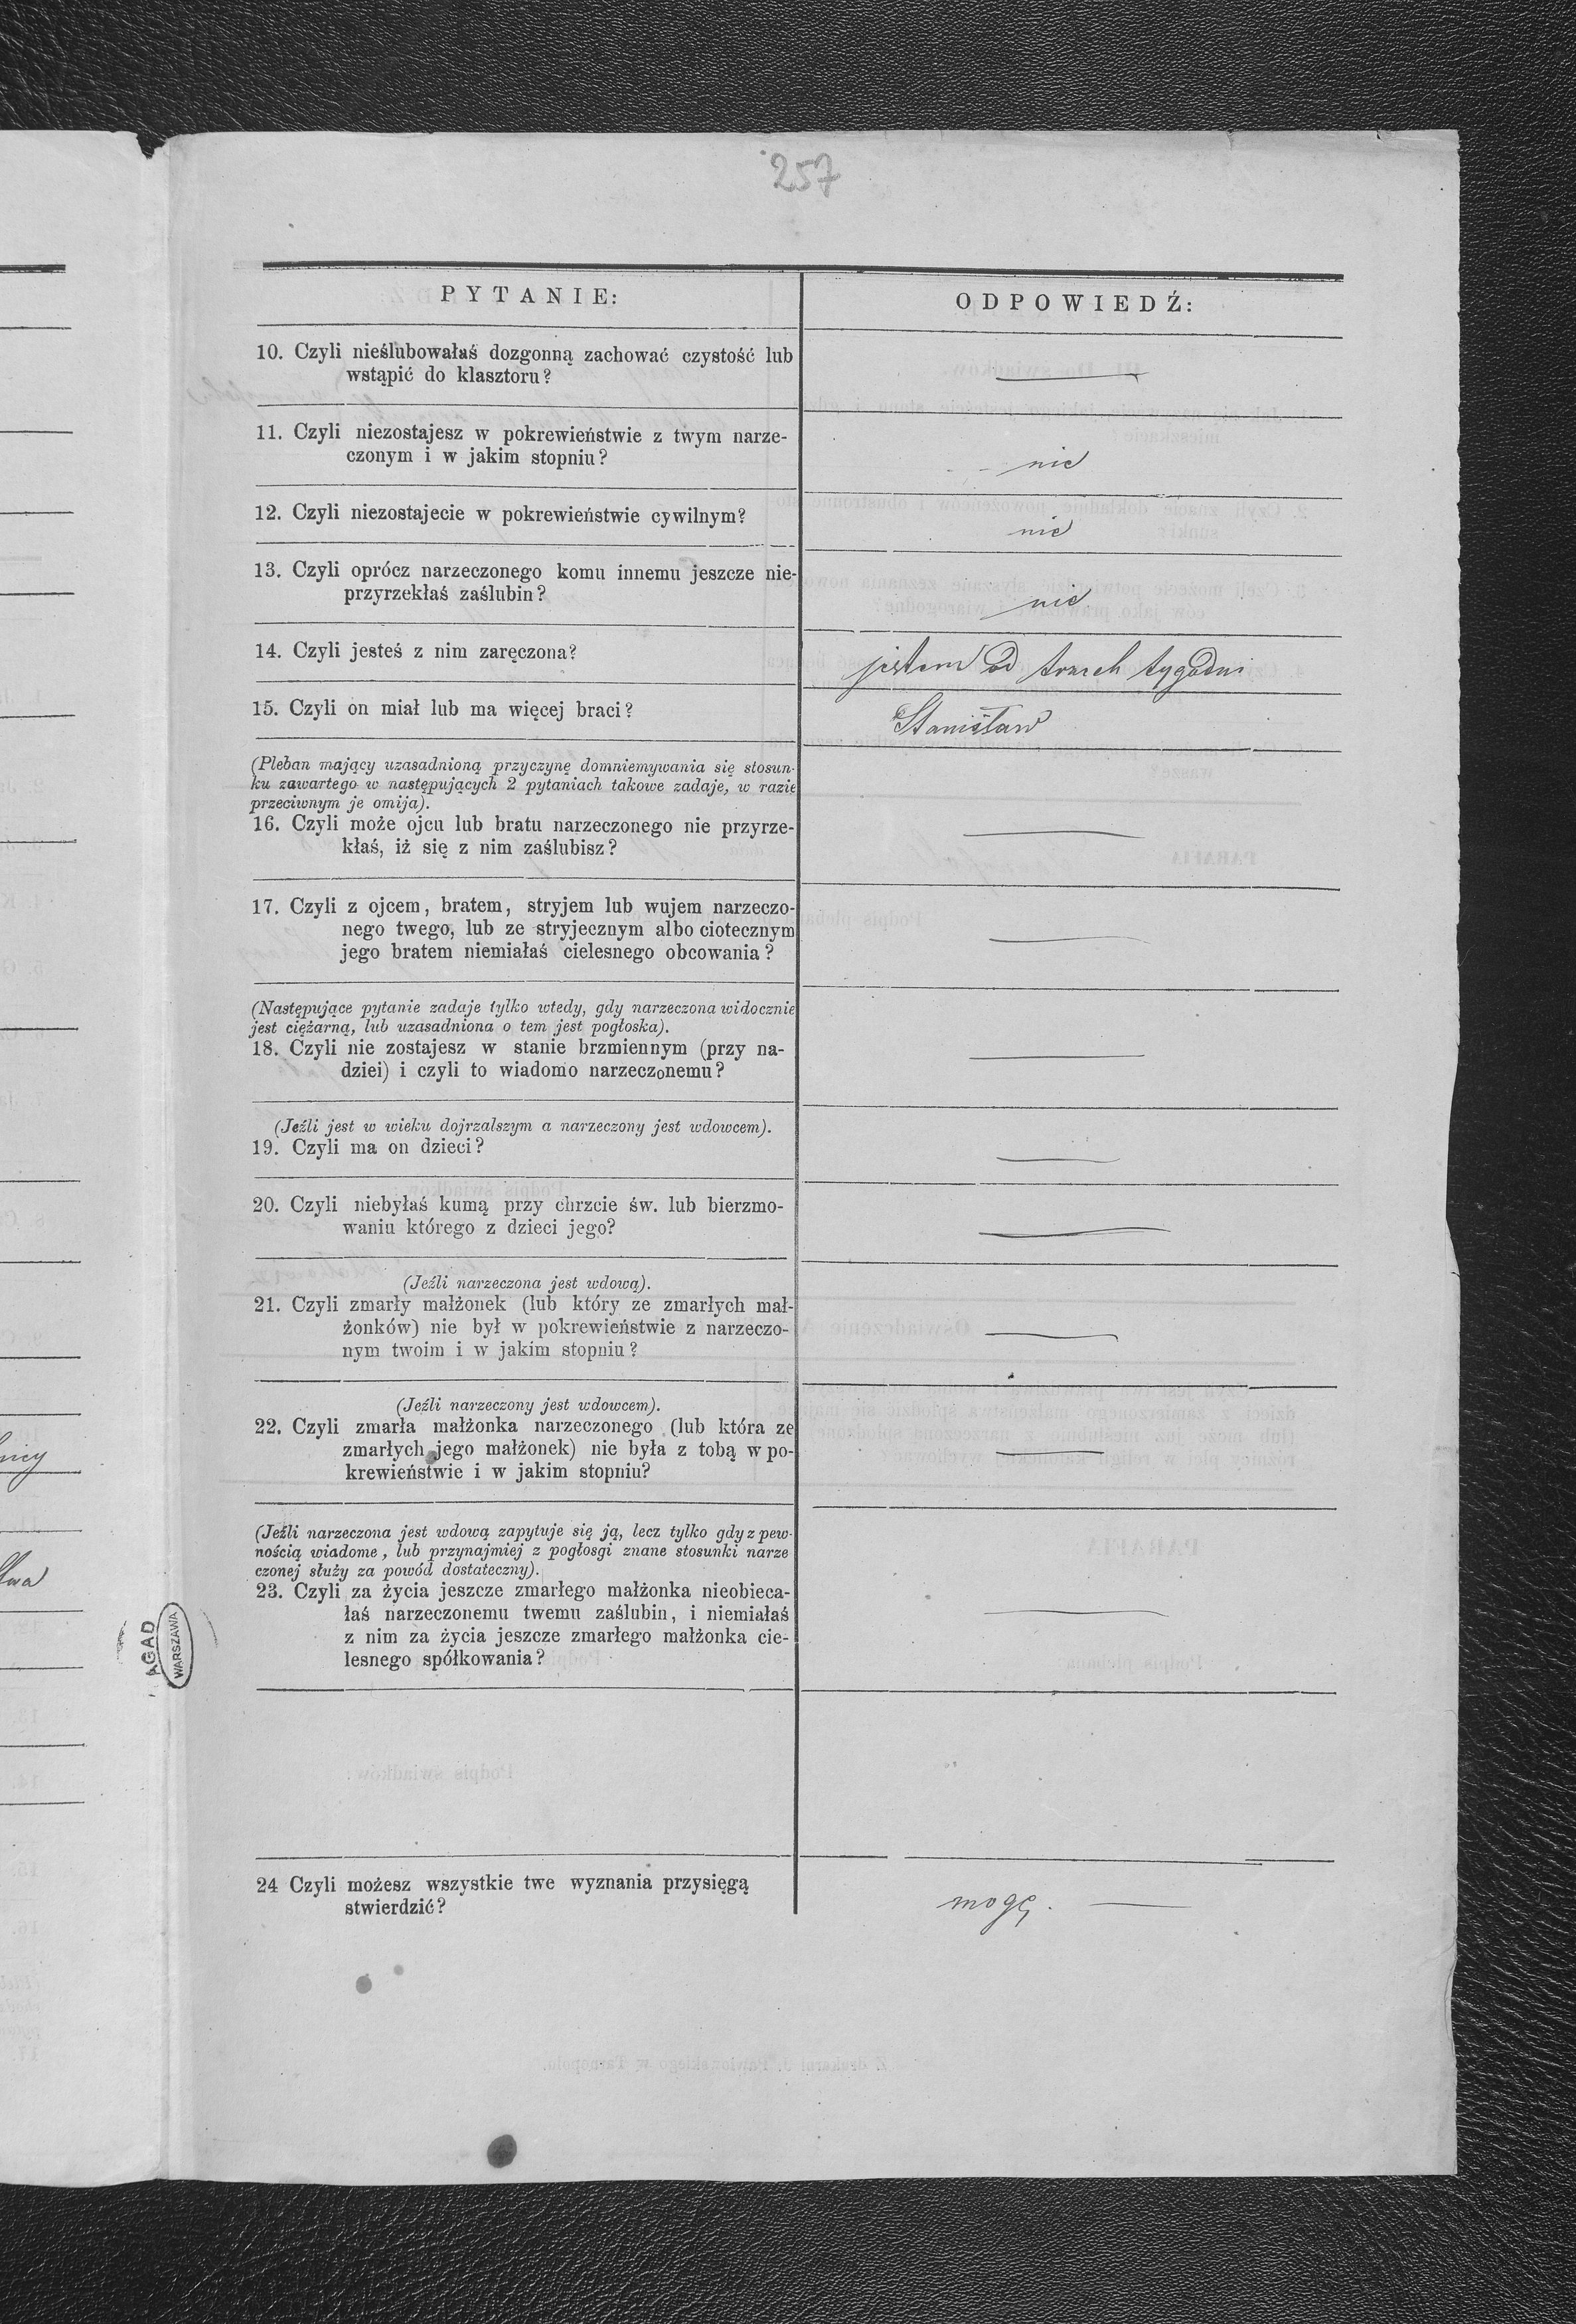 257
PYTANIE:
ODPOWIEDŹ:
10. Czyli nieślubowałaś dozgonną zachować czystość lub
wstąpić do klasztoru?
11. Czyli niezostajesz w pokrewieństwie z twym narze-
czonym i w jakim stopniu?
nie
12. Czyli niezostajecie w pokrewieństwie cywilnym?
nie
13. Czyli oprócz narzeczonego komu innemu jeszcze nie-
przyrzekłaś zaślubin?
nie
14. Czyli jesteś z nim zaręczona?
jestem od trzech tygodni
15. Czyli on miał lub ma więcej braci?
Stanisław
(Pleban mający uzasadnioną przyczynę domniemywania się stosun-
ku zawartego w następujących 2 pytaniach takowe zadaje, w razie
przeciwnym je omija).
16. Czyli może ojcu lub bratu narzeczonego nie przyrze-
kłaś, iż się z nim zaślubisz?
17. Czyli z ojcem, bratem, stryjem lub wujem narzeczo-
nego twego, lub ze stryjecznym albo ciotecznym
jego bratem niemiałaś cielesnego obcowania?
(Następujące pytanie zadaje tylko wtedy, gdy narzeczona widocznie
jest ciężarną, lub uzasadniona o tem jest pogłoska).
18. Czyli nie zostajesz w stanie brzmiennym (przy na-
dziei) i czyli to wiadomo narzeczonemu?
(Jeźli jest w wieku dojrzalszym a narzeczony jest wdowcem).
19. Czyli ma on dzieci?
20. Czyli niebyłaś kumą przy chrzcie św. lub bierzmo-
waniu którego z dzieci jego?
(Jeźli narzeczona jest wdową).
21. Czyli zmarły małżonek (lub który ze zmarłych mał-
żonków) nie był w pokrewieństwie z narzeczo-
nym twoim i w jakim stopniu?
(Jeźli narzeczony jest wdowcem).
22. Czyli zmarła małżonka narzeczonego (lub która ze
zmarłych jego małżonek) nie była z tobą w po-
krewieństwie i w jakim stopniu?
(Jeźli narzeczona jest wdową zapytuje się ją, lecz tylko gdy z pew-
nością wiadome, lub przynajmiej z pogłosgi znane stosunki narze
czonej służy za powód dostateczny).
23. Czyli za życia jeszcze zmarłego małżonka nieobieca-
łaś narzeczonemu twemu zaślubin, i niemiałaś
z nim za życia jeszcze zmarłego małżonka cie-
lesnego spółkowania?
24 Czyli możesz wszystkie twe wyznania przysięgą
stwierdzić?
mogę.
AGAD
WARSZAWA